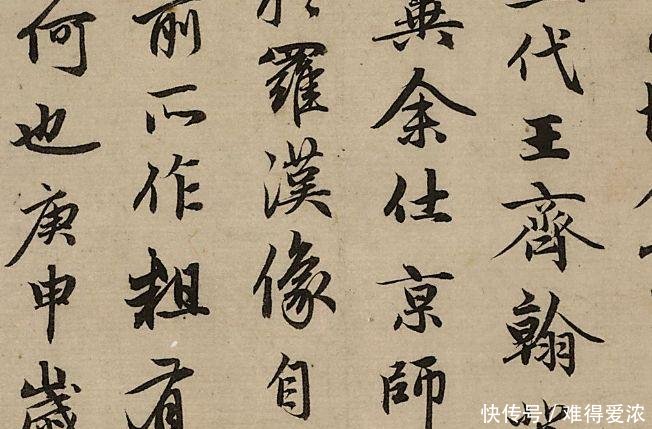 代王齊翰
余仕京師
羅漢像自
前所作粗有
何也庚申歲
快传号/难得爱浓